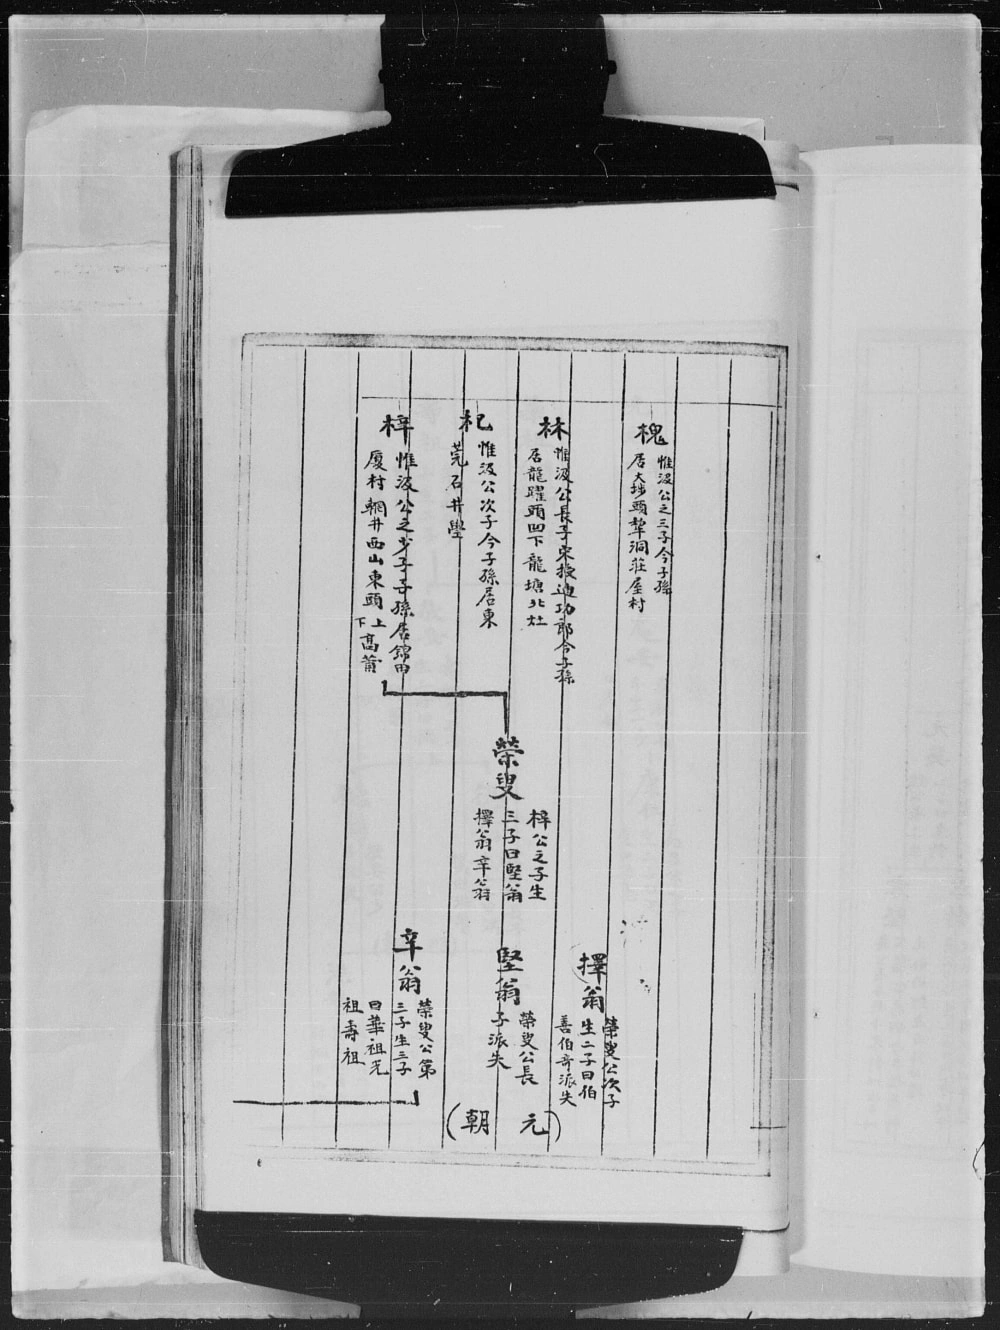 槐
惟汲公之三子今子孫
居大埗頭犂洞莊屋村
林
惟汲公長子宋授迪功郎今子孫
居龍躍頭凹下龍塘北灶
杞
惟汲公次子今子孫居東
莞石井壆
梓
惟汲公之少子子孫居錦田
廈村輞井西山東頭上
下高莆
榮叟
梓公之子生
三子曰堅翁
擇翁辛翁
擇翁
榮叟公次子
生二子曰伯
善伯奇派失
堅翁
榮叟公長
子派失
辛翁
榮叟公第
三子生三子
曰華祖光
祖壽祖
(元朝)